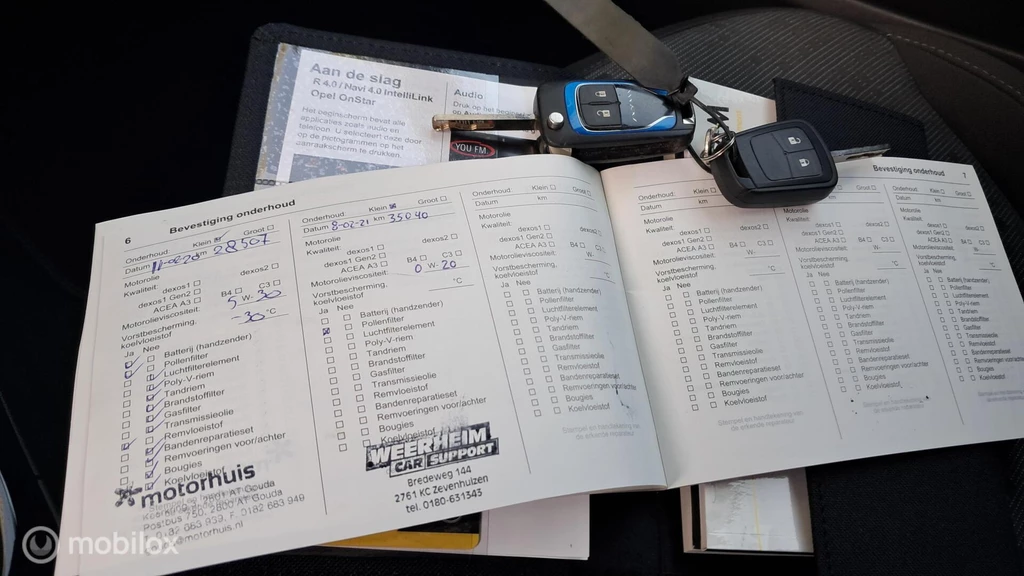 Aan de slag
R 4.0 / Navi 4.0 IntelliLink
Opel OnStar
Het beginscherm bevat alle
applicaties zoals audio en
telefoon. U selecteert deze door
op de pictogrammen op het
aanraakscherm te drukken.
Audio
Druk op het
YOU FM.
6 Bevestiging onderhoud
Onderhoud: Klein Groot
Datum km 28507
Motorolie
Kwaliteit: dexos1 dexos2
dexos1 Gen2
ACEA A3 B4 C3
Motorolieviscositeit: 5 W- 30
Vorstbescherming,
koelvloeistof -30 °C
Ja Nee
Batterij (handzender)
Pollenfilter
Luchtfilterelement
Poly-V-riem
Tandriem
Brandstoffilter
Gasfilter
Transmissieolie
Remvloeistof
Bandenreparatieset
Remvoeringen voor/achter
Bougies
Koelvloeistof
motorhuis
2801 AT Gouda
Postbus 750, 2800 AT Gouda
F. 0182 683 949
motorhuis.nl
Onderhoud: Klein Groot
Datum 8-02-21 km 35040
Motorolie
Kwaliteit: dexos1 dexos2
dexos1 Gen2
ACEA A3 B4 C3
Motorolieviscositeit: 0 W- 20
Vorstbescherming,
koelvloeistof °C
Ja Nee
Batterij (handzender)
Pollenfilter
Luchtfilterelement
Poly-V-riem
Tandriem
Brandstoffilter
Gasfilter
Transmissieolie
Remvloeistof
Bandenreparatieset
Remvoeringen voor/achter
Bougies
Koelvloeistof
WEERHEIM
CAR SUPPORT
Bredeweg 144
2761 KC Zevenhuizen
tel. 0180-631343
Onderhoud: Klein Groot
Datum km
Motorolie
Kwaliteit: dexos1 dexos2
dexos1 Gen2
ACEA A3 B4 C3
Motorolieviscositeit: W-
Vorstbescherming,
koelvloeistof °C
Ja Nee
Batterij (handzender)
Pollenfilter
Luchtfilterelement
Poly-V-riem
Tandriem
Brandstoffilter
Gasfilter
Transmissieolie
Remvloeistof
Bandenreparatieset
Remvoeringen voor/achter
Bougies
Koelvloeistof
Stempel en handtekening van
de erkende reparateur
Bevestiging onderhoud 7
Onderhoud: Klein
Datum km
Motorolie
Kwaliteit: dexos1 dexos2
dexos1 Gen2
ACEA A3 B4 C3
Motorolieviscositeit: W-
Vorstbescherming,
koelvloeistof °C
Ja Nee
Batterij (handzender)
Pollenfilter
Luchtfilterelement
Poly-V-riem
Tandriem
Brandstoffilter
Gasfilter
Transmissieolie
Remvloeistof
Bandenreparatieset
Remvoeringen voor/achter
Bougies
Koelvloeistof
Stempel en handtekening van
de erkende reparateur
Groot
Datum km
Motorolie
Kwaliteit: dexos1 dexos2
dexos1 Gen2
ACEA A3 B4 C3
Motorolieviscositeit: W-
Vorstbescherming,
koelvloeistof °C
Ja Nee
Batterij (handzender)
Pollenfilter
Luchtfilterelement
Poly-V-riem
Tandriem
Brandstoffilter
Gasfilter
Transmissieolie
Remvloeistof
Bandenreparatieset
Remvoeringen voor/achter
Bougies
Koelvloeistof
Stempel en handtekening van
de erkende reparateur
Onderhoud: Klein Groot
Datum km
Motorolie
Kwaliteit: dexos1 dexos2
dexos1 Gen2
ACEA A3 B4 C3
Motorolieviscositeit: W-
Vorstbescherming,
koelvloeistof °C
Ja Nee
Batterij (handzender)
Pollenfilter
Luchtfilterelement
Poly-V-riem
Tandriem
Brandstoffilter
Gasfilter
Transmissieolie
Remvloeistof
Bandenreparatieset
Remvoeringen voor/achter
Bougies
Koelvloeistof
mobilox